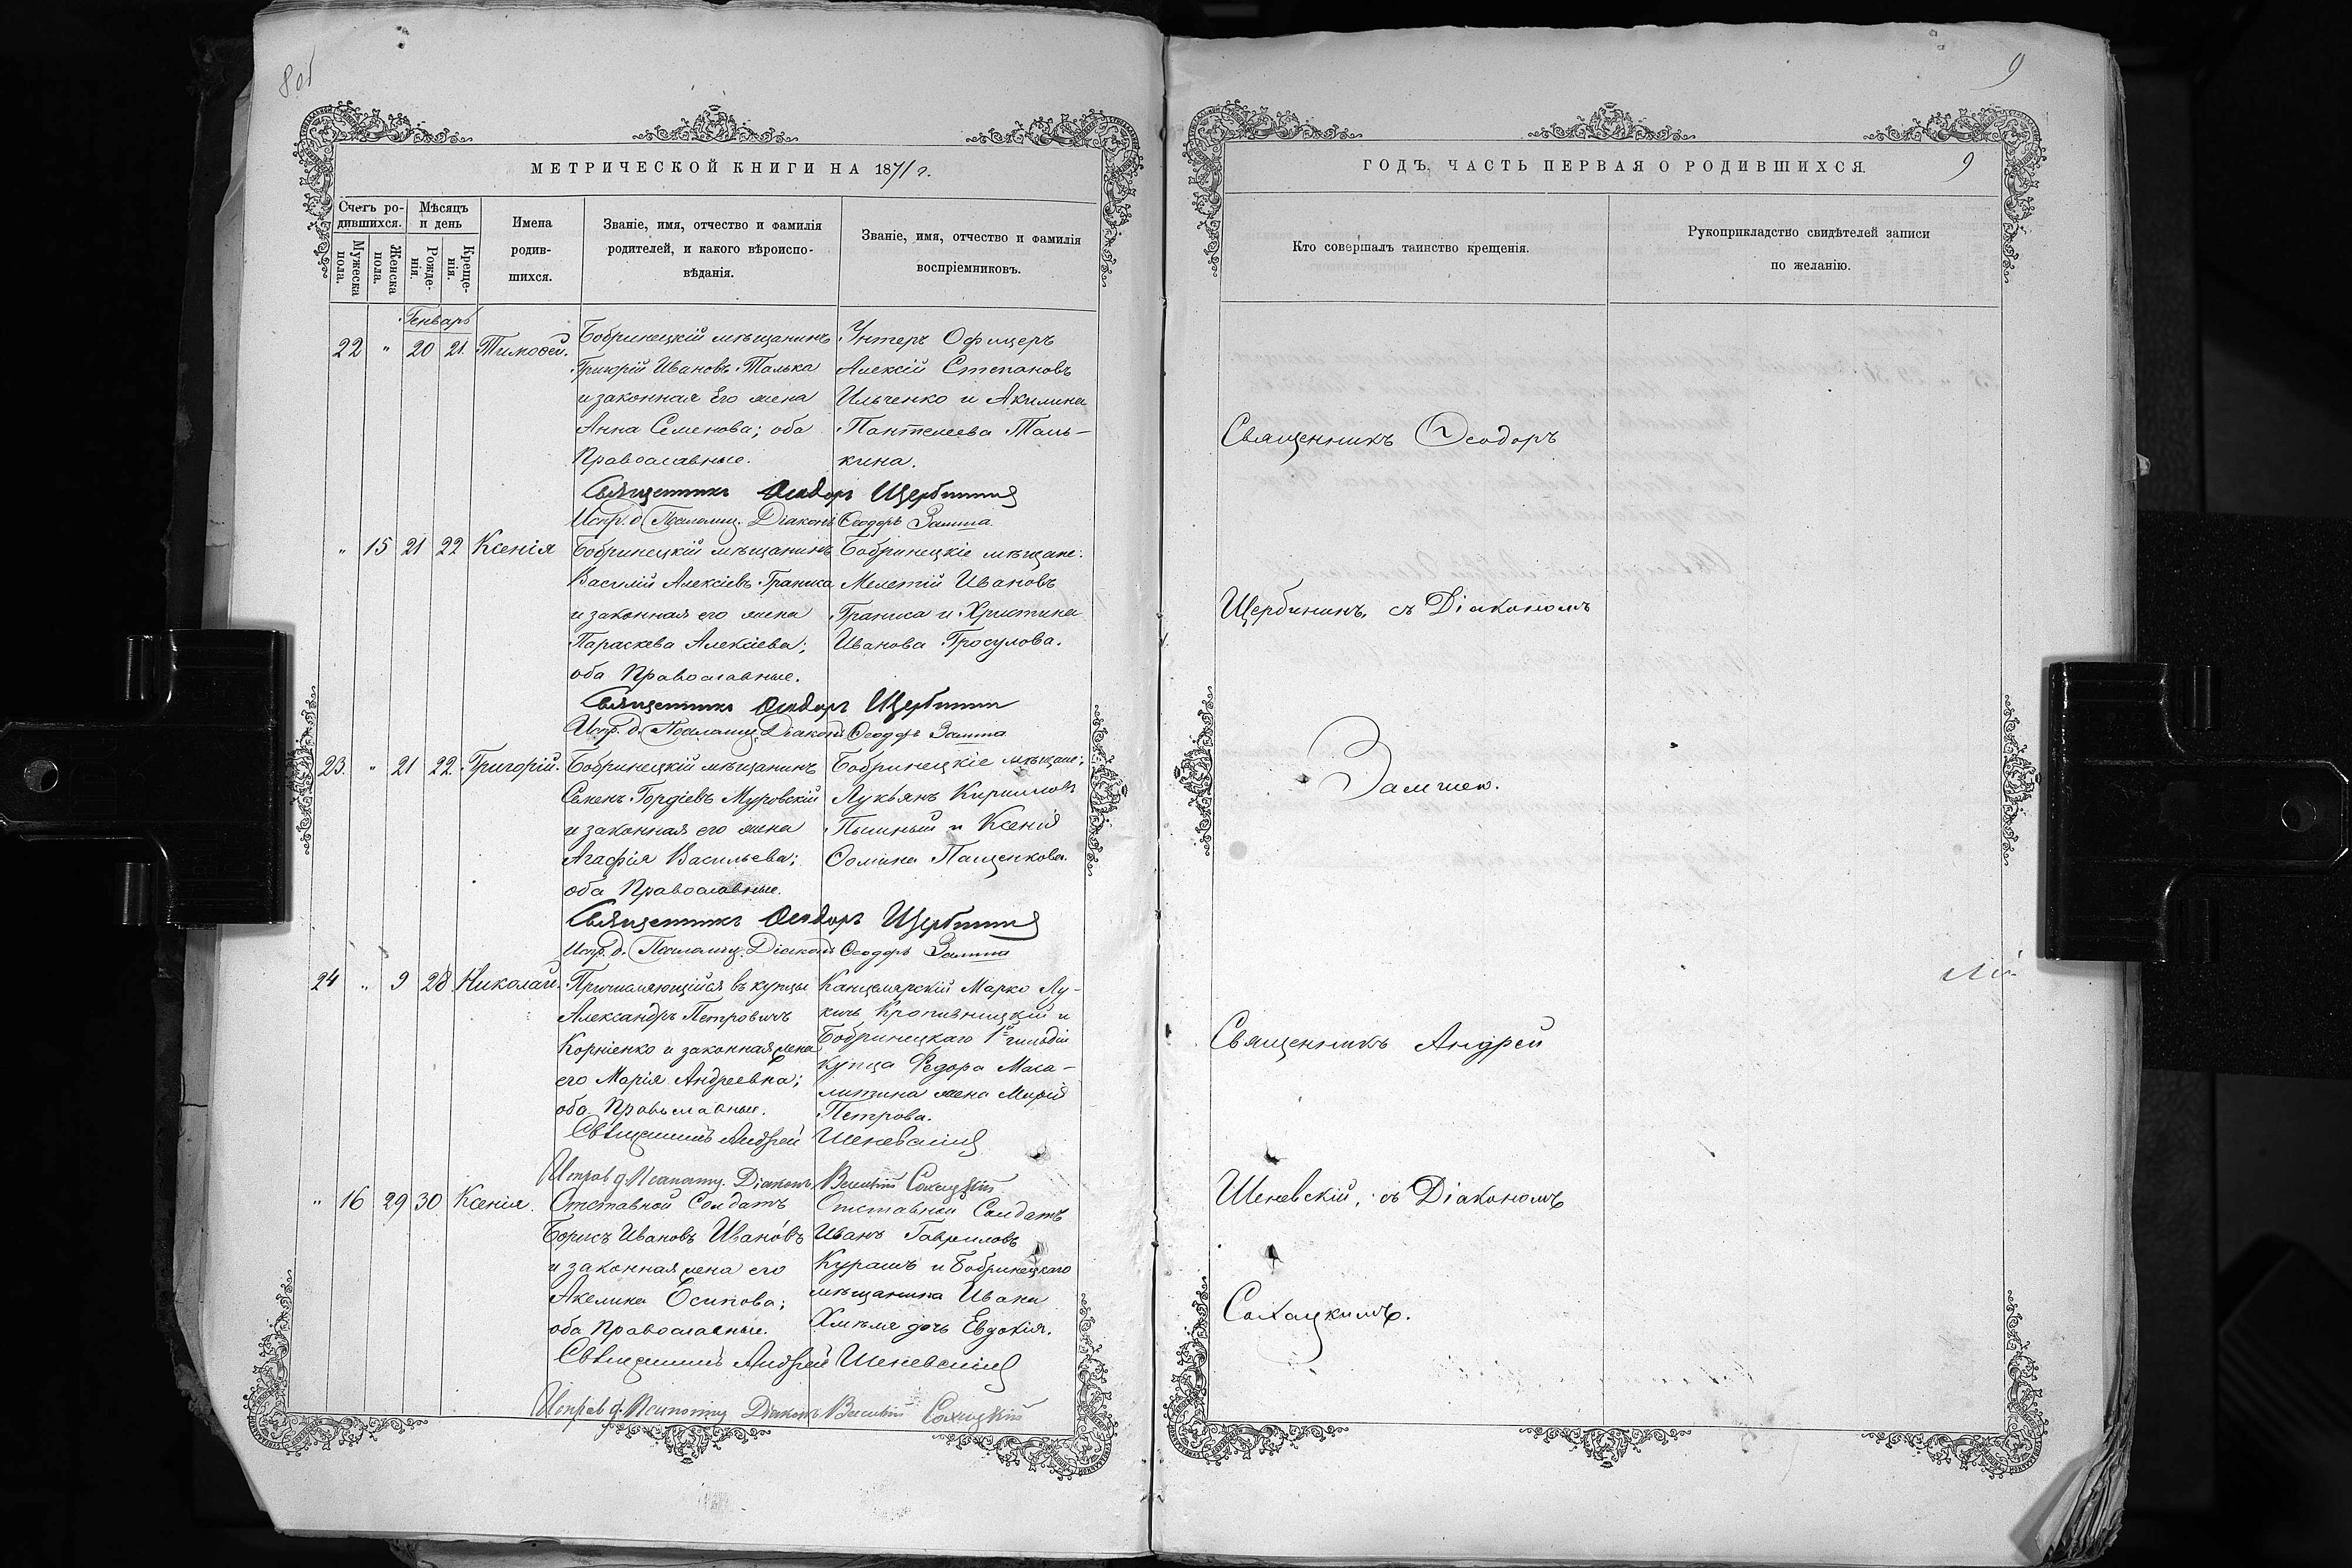 8 об
МЕТРИЧЕСКОЙ КНИГИ НА 1871 г.
Счетъ ро-
дившихся.
Мужеска
пола.
Женска
пола.
Мѣсяцъ
и день
Рожде-
нія.
Креще-
нія.
Имена
родив-
шихся.
Званіе, имя, отчество и фамилія
родителей, и какого вѣроиспо-
вѣданія.
Званіе, имя, отчество и фамилія
воспріемниковъ.
Генварь
22 " 20 21. Тимоѳей.
Бобринецкій мѣщанинъ
Григорій Ивановъ Талька
и законная Его жена
Анна Семенова; оба
Православные.
Унтеръ Офицеръ
Алексій Степановъ
Ильченко и Акилина
Пантелеева Таль-
кина.
Священникъ Ѳеодоръ Щербинин
Испр. д. Псаломщ. Діаконъ Ѳеодоръ Замша
" 15 21 22 Ксенія
Бобринецкій мѣщанинъ
Василій Алексіевъ
и законная его жена
Параскева Алексіева;
оба Православные.
Бобринецкіе мѣщане:
Мелетій Ивановъ
и Христина
Иванова Гросулова.
Священникъ Ѳеодоръ Щербинин
Испр. д. Псаломщ. Діаконъ Ѳеодоръ Замша
23. " 21 22. Григорій.
Бобринецкій мѣщанинъ
Семенъ Гордіевъ Муровскій
и законная его жена
Агафія Васильева;
оба Православные.
Бобринецкіе мѣщане;
Лукьянъ Кирилловъ
и Ксенія
Ѳомина Пащенкова.
Священникъ Ѳеодоръ Щербинин
Испр. д. Псаломщ. Діаконъ Ѳеодоръ Замша
24 " 9 28 Николай.
Причисляющійся въ купцы
Александръ Петровичъ
Корніенко и законная жена
его Марія Андреевна;
оба Православные.
Канцелярскій Марко Лу-
кичъ Кропивницкій и
Бобринецкаго 1й гильдіи
купца Федора Маса-
литина жена Марія
Петрова.
Священникъ Андрей Шеневскій
Исправ. д. Псаломщ. Діаконъ Сахацкій
" 16 29 30 Ксенія.
Отставной Солдатъ
Борисъ Ивановъ Ивановъ
и законная жена его
Акелина Осипова;
оба Православные.
Отставной Солдатъ
Иванъ Гавриловъ
и Бобринецкаго
мѣщанина Ивана
Хмѣля дочь Евдокія.
Священникъ Андрей Шеневскій
Исправ. д. Псаломщ. Діаконъ Сахацкій
9
ГОДЪ, ЧАСТЬ ПЕРВАЯ О РОДИВШИХСЯ.
9
Кто совершалъ таинство крещенія.
Рукоприкладство свидѣтелей записи
по желанію.
Священникъ Ѳеодоръ
Щербининъ, съ Діакономъ
Замшею.
Священникъ Андрей
Шеневскій, съ Діакономъ
Сахацкимъ.